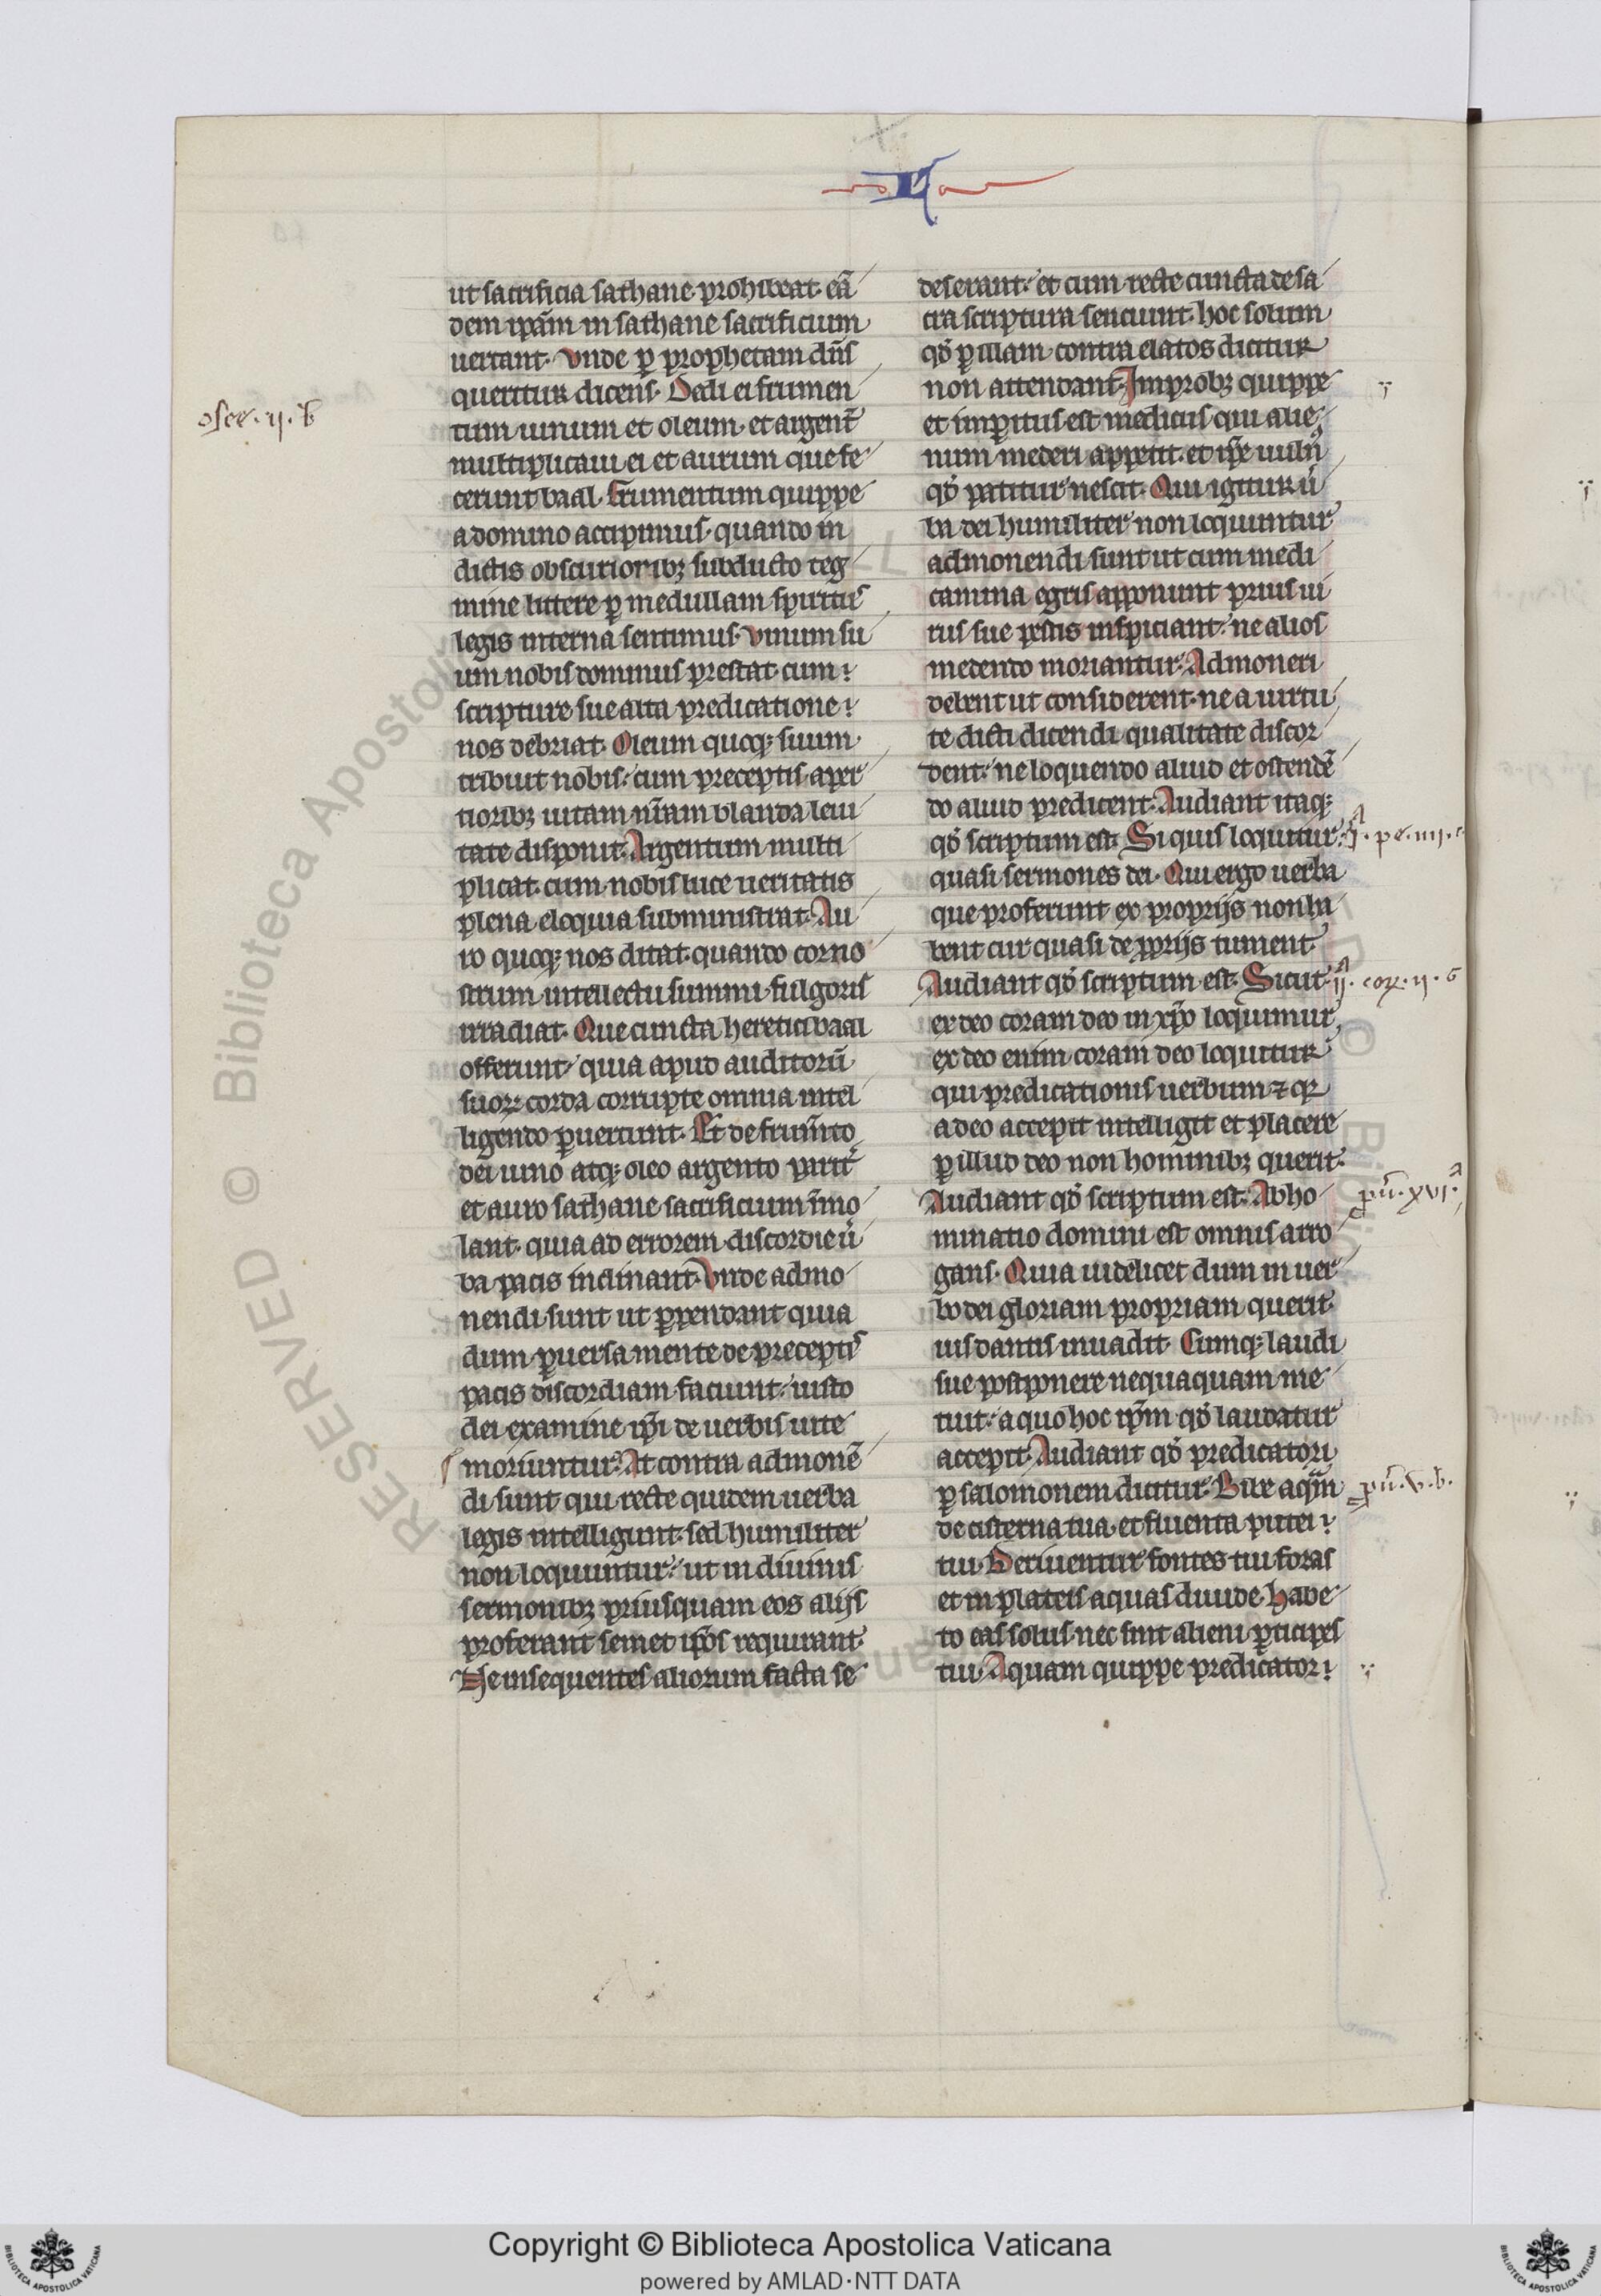 ut sacrificia sathane prohibeat· eã
dem ip̃am in sathane sacrificium
uertant· Vnde ꝑ prophetam dñs
queritur dicens· Dedi ei frumen
tum uinum et oleum· et argent̃
multiplicaui ei et aurum que fe
cerunt baal· Frumentum quippe
a domino accipimus· quando in
dictis obscurioribꝫ subducto teg
mine littere ꝑ medullam spiritus
legis interna sentimus· Vinum su
um nobis dominus prestat· cum
scripture sue alta predicatione
nos debriat· Oleum quoqꝫ suum
tribuit nobis· cum preceptis aper
tioribꝫ uitam nr̃am blanda leui
tate disponit· Argentum multi
plicat· cum nobis luce ueritatis
plena eloquia subministrat· Au
ro quoqꝫ nos ditat· quando cor no
strum intellectu summi fulgoris
irradiat· Que cuncta heretici baal
offerunt· quia apud auditorũ
suoꝝ corda corrupte omnia intel
ligendo ꝑuertunt· Et de frum̃to
dei uino atqꝫ oleo argento parit̃
et auro sathane sacrificium im̃o
lant· quia ad errorem discordie ũ
ba pacis inclinant· Vnde admo
nendi sunt ut ꝑpendant quia
dum ꝑuersa mente de preceptis
pacis discordiam faciunt· iusto
dei examine ip̃i de uerbis uite
moriuntur· At contra admonẽ
di sunt qui recte quidem uerba
legis intelligunt· sed humiliter
non loquuntur· ut in diuinis
sermonibꝫ priusquam eos alijs
proferant semet ip̃os requirant·
Ne insequentes aliorum facta se
deserant· et cum recte cuncta de sa
cra scriptura sentiunt· hoc solum
qđ ꝑ illam contra elatos dicitur
non attendant· Improbꝫ quippe
et imꝑitus est medicus qui alie
num mederi appetit· et ip̃e uuln9
qđ patitur nescit· Qui igitur ũ
ba dei humiliter non loquuntur
admonendi sunt ut cum medi
camina egris apponunt prius ui
rus sue pestis inspiciant· ne alios
medendo moriantur· Admoneri
debent ut considerent· ne a uirtu
te dicti dicendi qualitate discor
dent· ne loquendo aliud et ostendẽ
do aliud predicent· Audiant itaqꝫ
qđ scriptum est· Si quis loquitur
quasi sermones dei· Qui ergo uerba
que proferunt ex proprijs non ha
bent cur quasi de ꝓprijs tument·
Audiant qđ scriptum est· Sicut
ex deo coram deo in xp̃o loquimur
ex deo enim coram deo loquitur
qui predicationis uerbum ⁊ qꝛ
a deo accepit intelligit et placere
ꝑ illud deo non hominibꝫ querit·
Audiant qđ scriptum est· Abho
minatio domini est omnis arro
gans· Quia uidelicet dum in uer
bo dei gloriam propriam querit·
ius dantis inuadit· Eumqꝫ laudi
sue postponere nequaquam me
tuit· a quo hoc ip̃m qđ laudatur
accepit· Audiant qđ predicatori
ꝑ salomonem dicitur· Bibe aq̃m
de cisterna tua· et fluenta putei
tui· Deriuentur fontes tui foras
et in plateis aquas diuide· Habe
to eas solus· nec sint alieni ꝑticipes
tui· Aquam quippe predicator
osee·ij·b
j·pe·iiij·
ij·coꝝ·ij·G
pũ·xvj·
pũ·v·b·
Copyright © Biblioteca Apostolica Vaticana
powered by AMLAD·NTT DATA